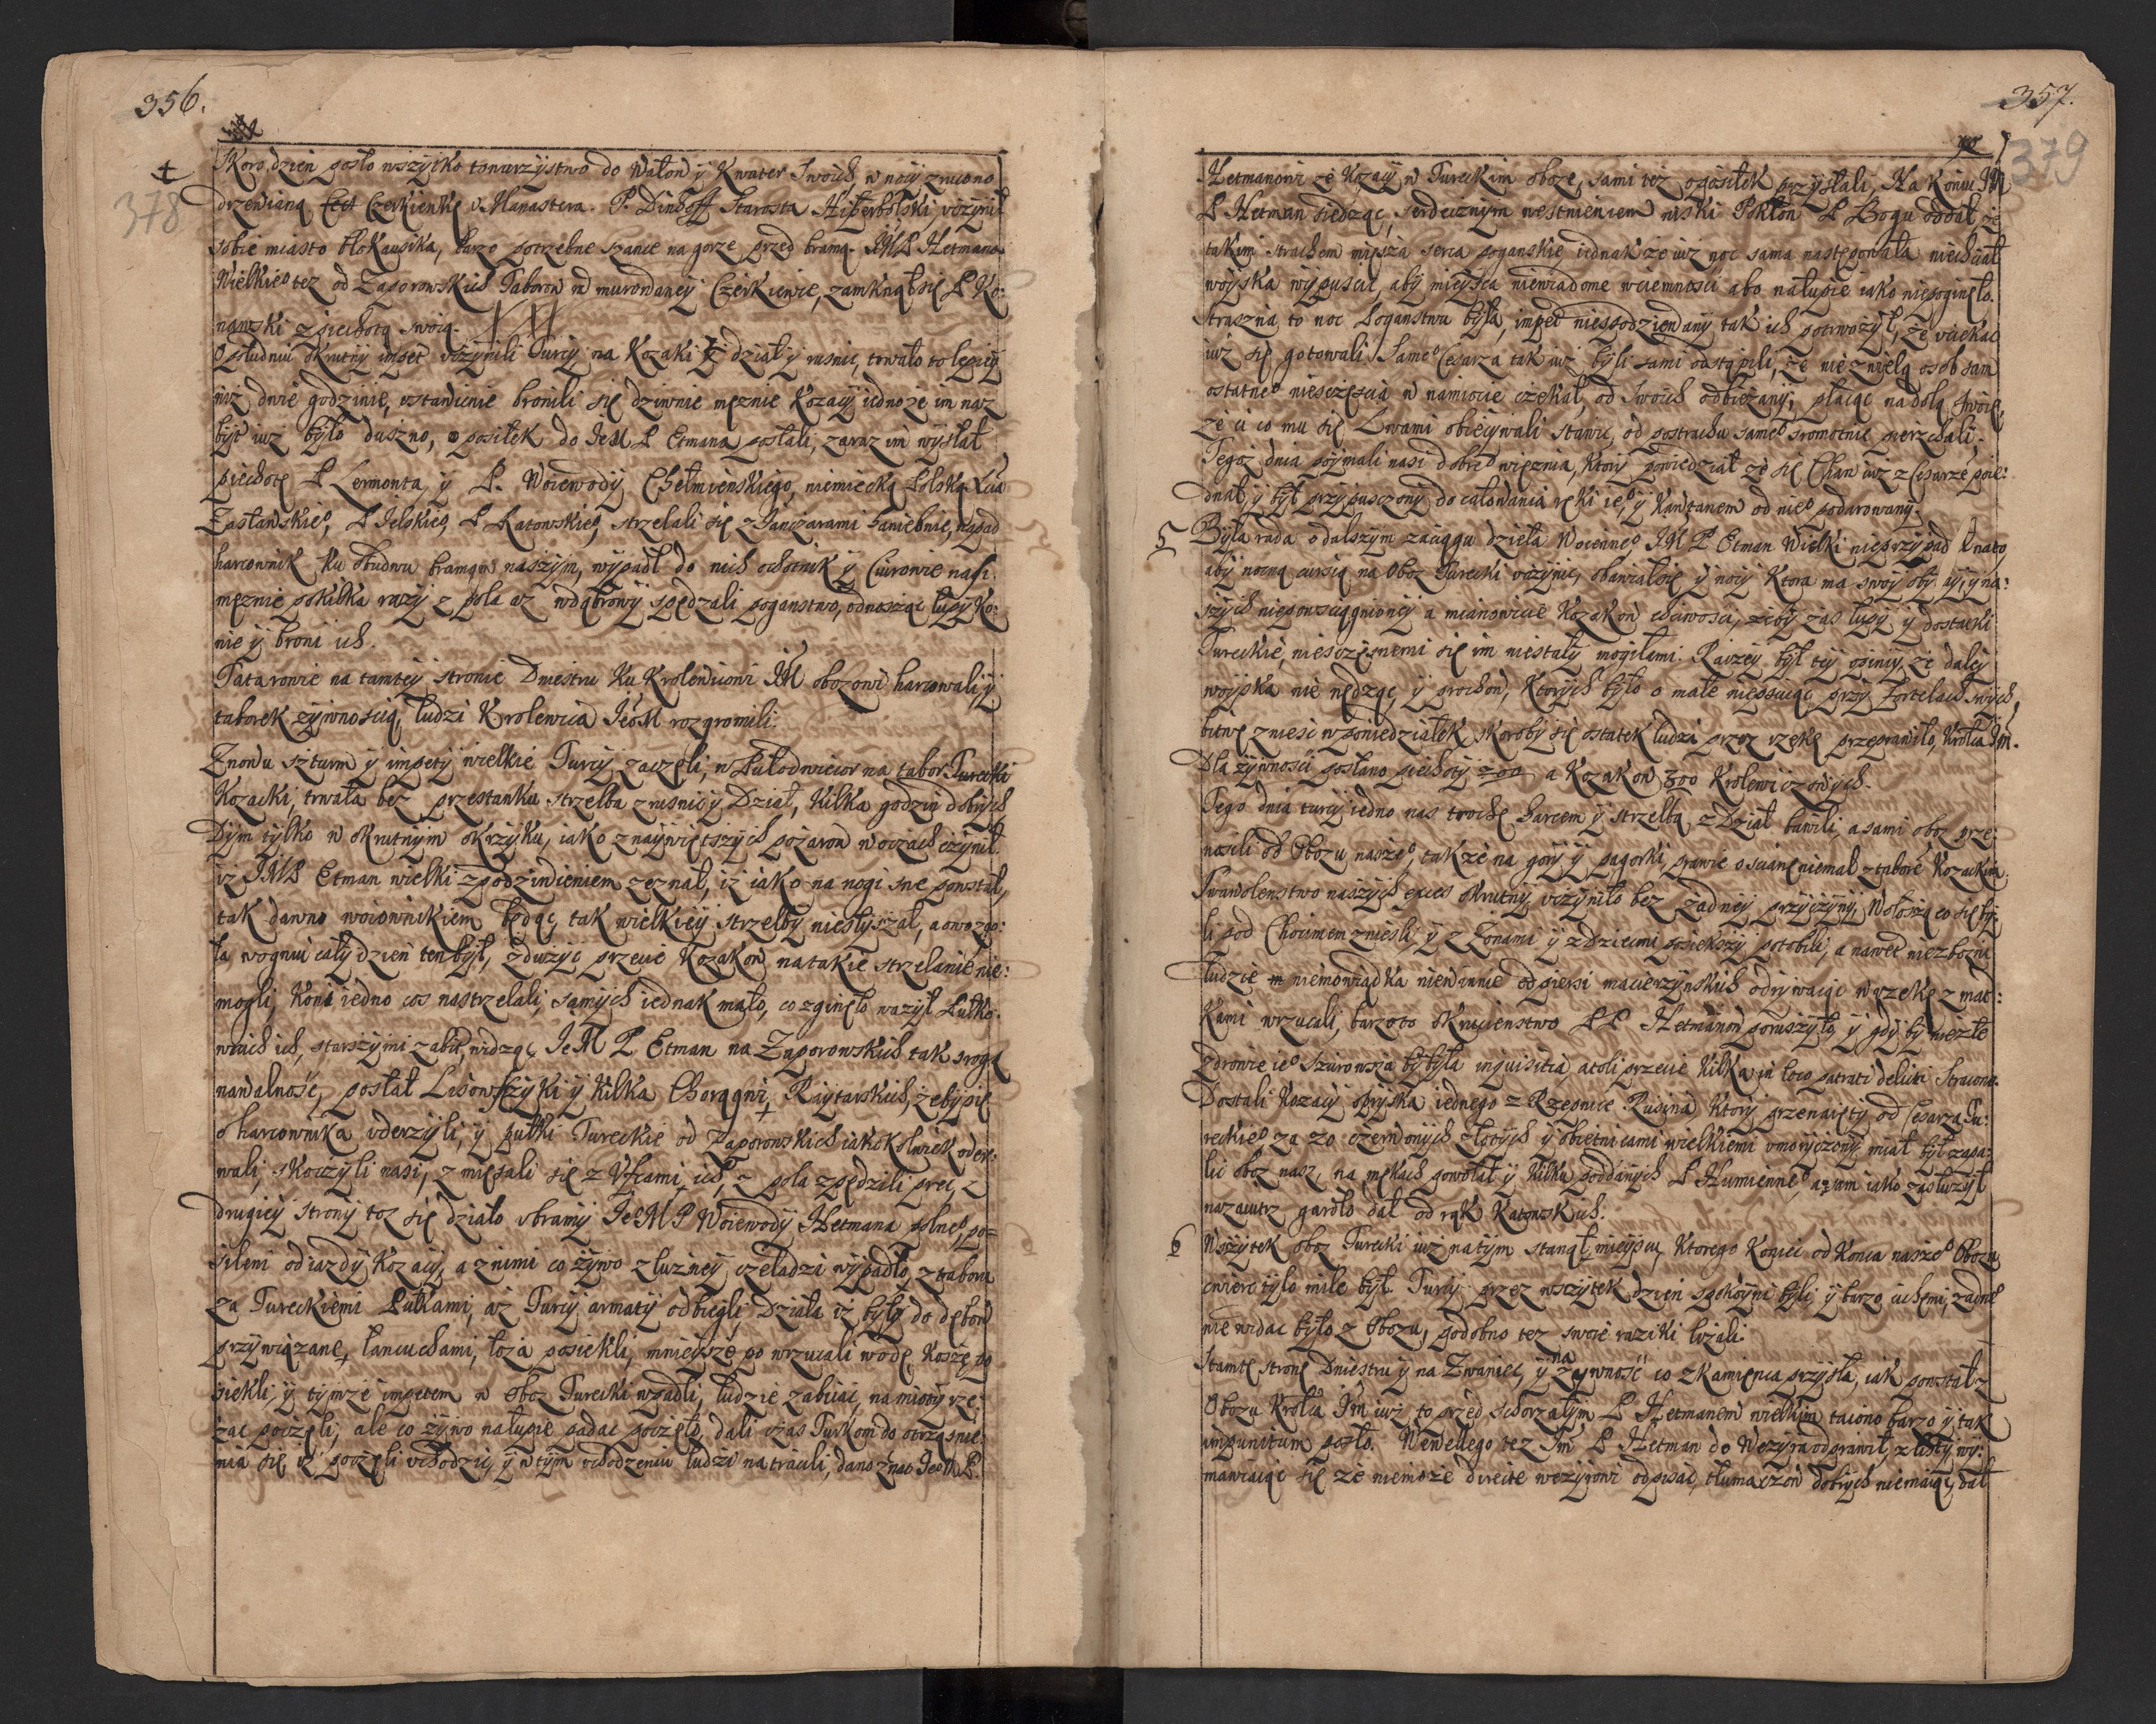 356.
4
378
Skoro dzien poszło wszytko towarzystwo do Wałow y Kwater Swoich w nocy zrucono
drzewianą Czerkienkę v Manastera. P. Dinhoff Starosta uczynił
sobie miasto blokauzika, barzo potrzebne szance na gorze przed bramą. JMP Hetmana
Wielkieo tez od Zaporowskich Taborow w murowaney Czerkiewie, zamknął się P Ko:
nawski z piechotą swoią.
O południu okrutny impet uczynili Turcy na Kozaki z dział y rusnic, trwało to lepiey
niz dwie godzinie, ustawicznie bronili się dziwnie męznie Kozacy iedno ze im naz
byt iuz było duszno, o posiłek do JeM P Etmana posłali, zaraz im wysłał
piechotę P Lermonta, y P. Woiewody Chełmienskiego, niemiecką Polską Xcia
Zasławskieo, P Jelskieo, P Katowskieo, strzelali się z Janczarami haniebnie, napadł
harcownik ku obudwu bramom naszym, wypadł do nich ochotnik y Curowie nasi
męznie po kilka razy z pola az w dąbrowy spędzali poganstwo, odnosząc łupy Ko:
nie y broni ich.
Tatarowie na tamtey stronie Dniestru ku Krolewicowi JM obozowi harcowali, y
taborek z zywnoscią, ludzi Krolewica JeoM rozgromili.
Znowu szturm y impety wielkie Turcy zaczęli, w Pułodwieczor na tabor Turecki
Kozacki, trwała bez przestanku strzelba z rusnic y Dział, Kilka godzin dobrych
Dym tylko w okrutnym okrzyku, iako z naywiętszych pozarow w oczach czynił.
iz JMP Etman wielki z podziwieniem zeznał, iz iako na nogi swe powstał,
tak dawno woiownikiem będąc, tak wielkiey strzelby niesłyszał, a owo zgo:
ła w ogniu cały dzien ten był, zduzyc przecie Kozakow na takie strzelanie nie:
mogli, Koni iedno cos nastrzelali, samych iednak mało, co zginęło wazył Pułko.
wnich ich, starszymi zabił, widząc JeM P Etman na Zaporowskich tak srogą
nawalność, posłał Lisowczyki y Kilka Chorągwi Raytarskich, zeby się
o harcownika uderzyli, y pułki Tureckie od Zaporowskich iakokolwiek oder:
wali, skoczyli nasi, zmięszali się z Ufcami ich, z pola zpędzili precz, z
drugiey strony toz się działo u bramy JeoMP Woiewody Hetmana polneo, po=
sileni od iazdy Kozacy, a znimi co zywo z luzney czeladzi wypadło z taboru
za Tureckiemi Pułkami, az Turcy armaty odbiegli Działa iz były do dębow
przywiązane, łancuchami, łoza posiekli, mnieysze po wrzucali wodę Kosze po
siekli, y tymze impetem w oboz Turecki wpadli, ludzie zabiiać, namioty rze:
zac poczęli, ale co zywo na łupie padac poczęło, dali czas Turkom do otrząsnie:
nia się iz poczęli uchodzic, y w tym uchodzeniu ludzi natracili, dano znac JeoM P.
357.
379
Hetmanowi ze Kozacy w Tureckim obozie, sami tez o posiłek przysłali, Na koniu JM
P Hetman siedząc, serdecznym westchnieniem niski Pokłon P Bogu oddał, ze
takim strachem miesza serca poganskie, iednak ze iuz noc sama nastepowała niechciał
woyska wypuscic, aby mieysca niewiadome w ciemnosci abo na łupie iako niepoginęło.
Straszna to noc Poganstwu była, impet niespodziewany tak ich potrwozył, ze uciekac
iuz się gotowali. Sameo Cesarza tak iuz byli sami odstąpili, ze nie z wielą osob sam
ostatneo niesczęscia w namiocie czekał, od swoich odbiezany, płacąc na dolą swoię,
ze ci co mu się Lwami obiecywali stawic, od postrachu sameo sromotnie pierzchali.
Tegoz dnia poymali nasi dobreo więznia, ktory powiedział ze się Chan iuz z Cesarzem poie:
dnał, y był przypusczony do całowania ręki ieo, y Kawtanem od nieo podarowany.
5
Była rada o dalszym zaciągu dzieła Woienneo JM P Etman Wielki nieprzypadł na to
aby nocną cursią na Oboz Turecki uczynic, obawiał się y nocy ktora ma swoy obyczay, y na:
szych niepowsciągnioney a mianowicie Kozakow chciwosci, zeby zas łupy y dostatki
Tureckie, niesczęsnemi się im niestały mogiłami. Raczey był tey opiniy, ze daley
woyska nie nędząc, y prochow, ktorych było o małe niepsuiąc, przy fortelach swych,
bitwę zniesc w poniedziałek, skoroby się ostatek ludzi przez rzekę przeprawiło, Krolca JM.
Dla zywnosci posłano piechoty 200 a Kozakow 300 Krolewiczowych.
Tego dnia turcy iedno nas trochę harcem y strzelbą z Dział bawili, a sami oboz prze:
nosili od Obozu naszeo, takze na gory y pagorki, prawie o scianę niemal z taborem Kozackim
Swawolenstwo naszych exces okrutny uczyniło bez zadney przyczyny, Wołoszą co się by:
li pod Chocimem zniesli, y z zonami y z dziecmi posiekszy potobili, a nawet niezbozni
ludzie niemowiątka niewinne od piersi macierzynskich odrywaiąc w rzekę z mat:
kami wrzucali, barzo to okrucienstwo PP Hetmanow poruszyło, y gdyby niezłe
zdrowie ieo szurowsza by była inquisitia, atoli przecie Kilka in loco patrati delicti Stracono.
Dostali Kozacy opryska iednego z Rzepnice Rusina ktory przenaięty od Cesarza Tu:
reckieo, za 20 czerwonych złotych y obietnicami wielkiemi umorzyczony, miał był zapa:
lic oboz nasz, na mękach powołał y kilku poddanych P Humienneo, a sam iako zasłuzył
nazaiutrz gardło dał od rąk Katowskich.
6
Wszytek oboz Turecki iuz na tym stanął mieyscu, ktorego koniec od Konca naszeo Obozu
cwierc tylo mile był. Turcy przez wszytek dzien spokoyni byli, y barzo cichemi, zadne
nie widac było z Obozu, podobno tez swoie raziki lizali.
Z tamtę stronę Dniestru y na Zwaniec, y na zywność co z Kamienca przyszła, iak powstał z
Obozu Krolca JM iuz to przed schorzałym P Hetmanem wielkim taiono barzo y tak
impunitum poszło. Wewellego tez JM P Hetman do Wezyra odprawił, z listy wy:
mawiaiąc się ze niemoze directe wezyrowi odpisac, tłumaczow dobrych niemaiąc, dał